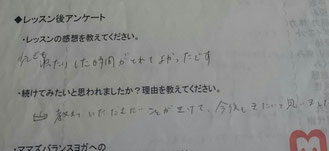 ◆レッスン後アンケート
・レッスンの感想を教えてください。
した時間がとれてよかったです
・続けてみたいと思われましたか？理由を教えてください。
教えていただたことが出来て、今後も
・ママズバランスヨガへの